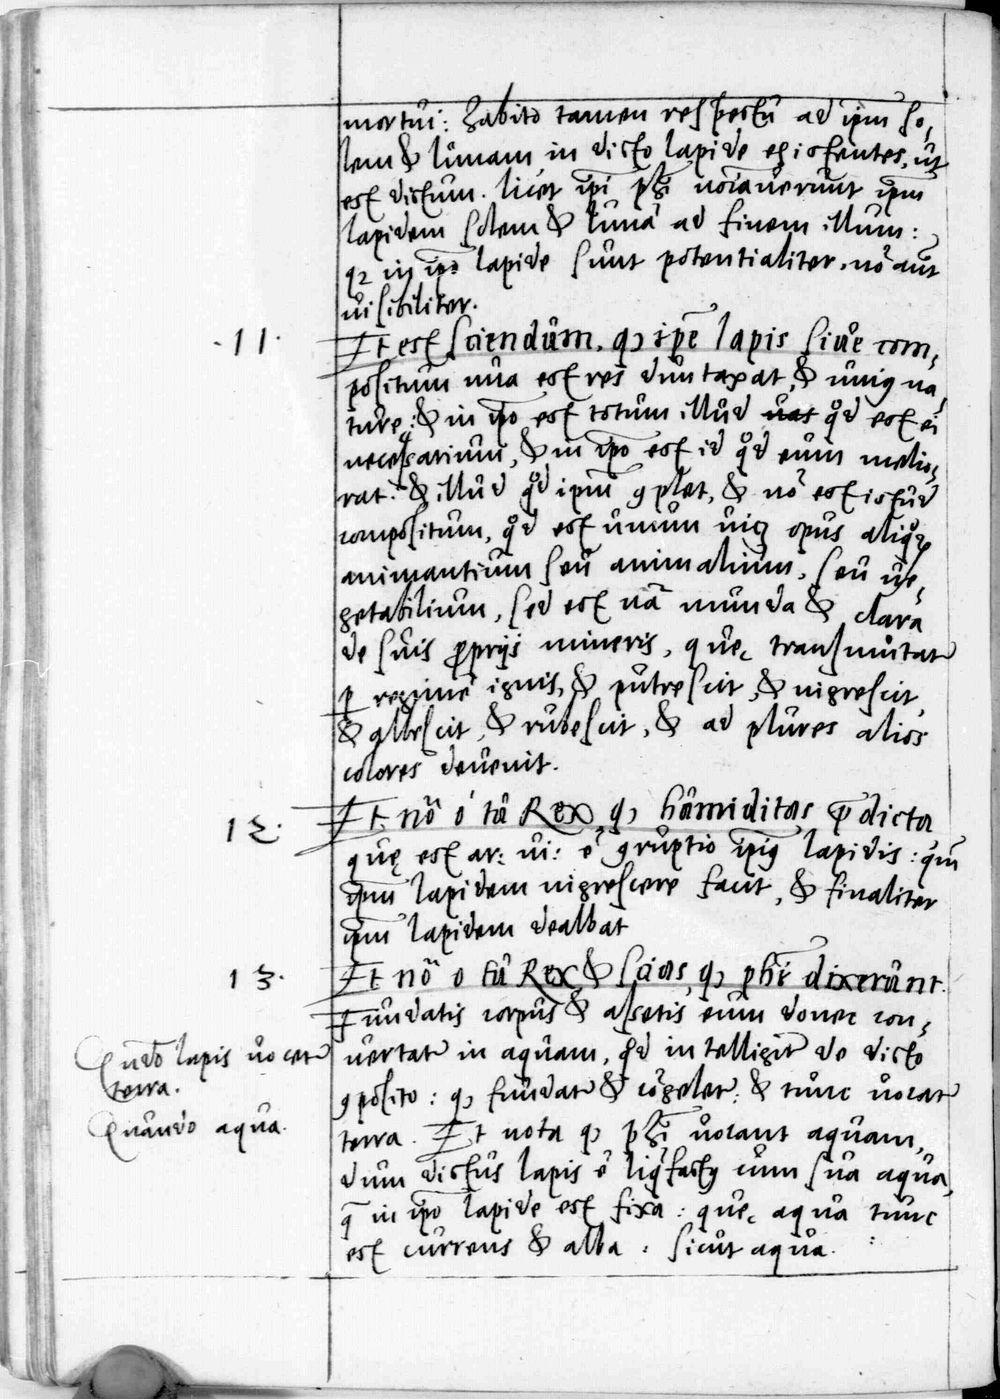 mortui: habito tamen respectu ad ipm̄ so,
lem & lunam in dicto lapide existentes, ut
est dictum. licet ipi̅ phi̅ noi̅auerunt ipm̄
lapidem solem & lunā ad finem illum:
qz in ipo̅ lapide sunt potentialiter, nō aut̄
uisibiliter.
.11. It est sciendum, q̨ ipē lapis siue com,
positum una est res duntaxat, & unius na,
ture: & in ipō est totum illud qd̊ est ei
necessarium, & in ipō est id qd̊ eum melio,
rat. & illud qd̊ ipm̄ ꝯplet, & nō est istud
compositum, qd̊ est unum opus
animantium seu animalium, seu ue,
getabilium, sed est nā munda & clara
de suis ꝓprijs mineris, quę transmutat̄
ꝑ regimē ignis, & putrescit, & nigrescit,
& albescit, & rubescit, & ad plures alios
colores deuenit.
12. It. nō ō tu̅ Rex, q̨ humiditas p̄dicta
quę est ar: ui: ē ꝯruptio ipiꝰ lapidis: qm̄
ipm̄ lapidem nigrescere facit, & finaliter
ipm̄ lapidem dealbat
13. It nō o tu̅ Rex & scias, q̨ phi̅ dixerunt.
Fundatis corpus & assetis eum donec con,
uertat̄ in aquam, qd̊ intelligit̄ de dicto
ꝯposito: q̨ fundat̄ & cōgelet̄: & tunc uocat̄
terra. Et nota q̨ phi̅ uocant aquam,
dum dictus lapis ē liq̊factꝰ cum sua aqua,
q̄ in ipō lapide est fixa: quę aqua tunc
est currens & alba: sicut aqua.
Qundō lapis uocet̄
terra.
Quando aqua.